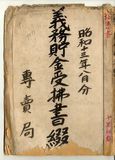 昭和十三年八月分
義務貯金受拂書綴
專賣局